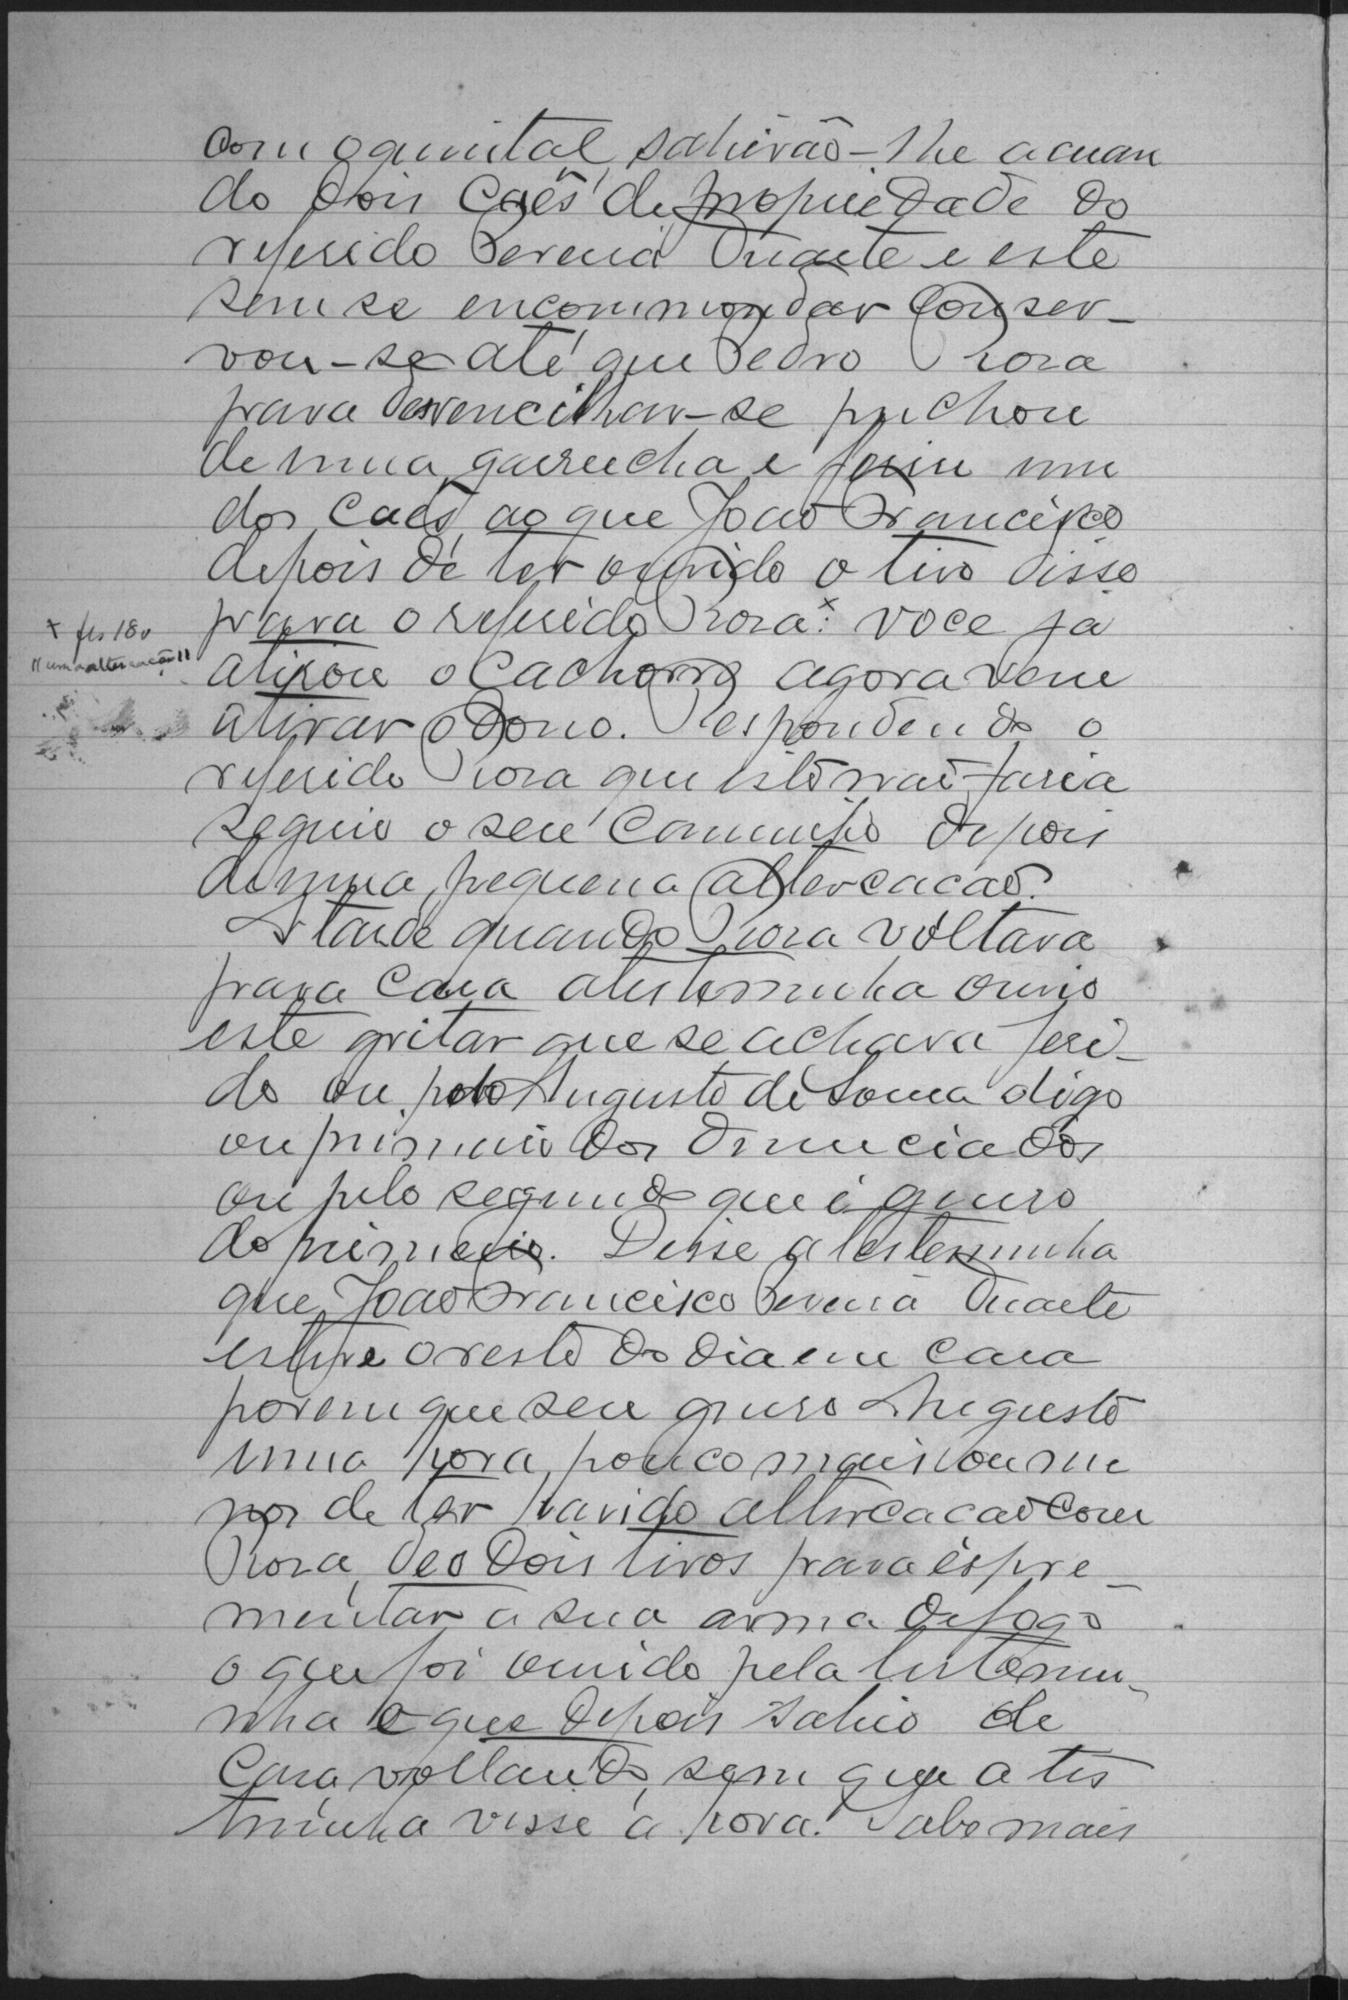 com o quintal sahirão-lhe acuan
do dois cães de propriedade do
referido Pereira Duarte e este
sem se encommodar conser-
vou-se até que Pedro Roza
para desvencilhar-se puchou
de uma garrucha e feriu um
dos cães, ao que João Francisco
depois de ter ouvido o tiro disse
para o referido Roza: voce já
x fls 18v
"uma altercação"
atirou o cachorro agora vem
atirar o dono. Respondendo o
referido Roza que isto não faria
seguio o seu caminho depois
de uma pequena altercacão.
A tarde quando Roza voltava
para casa a testeminha ouvio
este gritar que se achava feri-
do ou pelo Augusto de Souza digo
ou primeiro dos denunciados
ou pelo segundo que é genro
do primeiro. Disse a testeminha
que João Francisco Pereira Duarte
esteve o resto do dia em casa
porem que seu genro Augusto
uma hora pouco mais ou me
nos de ter havido altercacão com
Roza, deo dois tiros para espre-
mentar a sua arma de fogo
o que foi ouvido pela testemu-
nha e que depois sahio de
casa voltando, sem que a tes
teminha visse a hora. Sabe mais